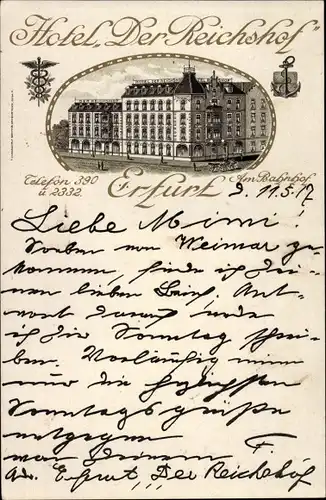 Hotel „Der Reichshof“
Telefon 390
u. 2332.
Am Bahnhof
Erfurt
d. 11.5.17
Liebe Mimi!
Soeben von Weimar ge-
kommen, finde ich Dei-
nen lieben Brief. Ant-
wort darauf werde
ich Dir Sonntag schrei-
ben. Vorläufig nimm
nur die herzlichsten
Sonntagsgrüße
entgegen
von Deinem F.
Adr. Erfurt, „Der Reichshof